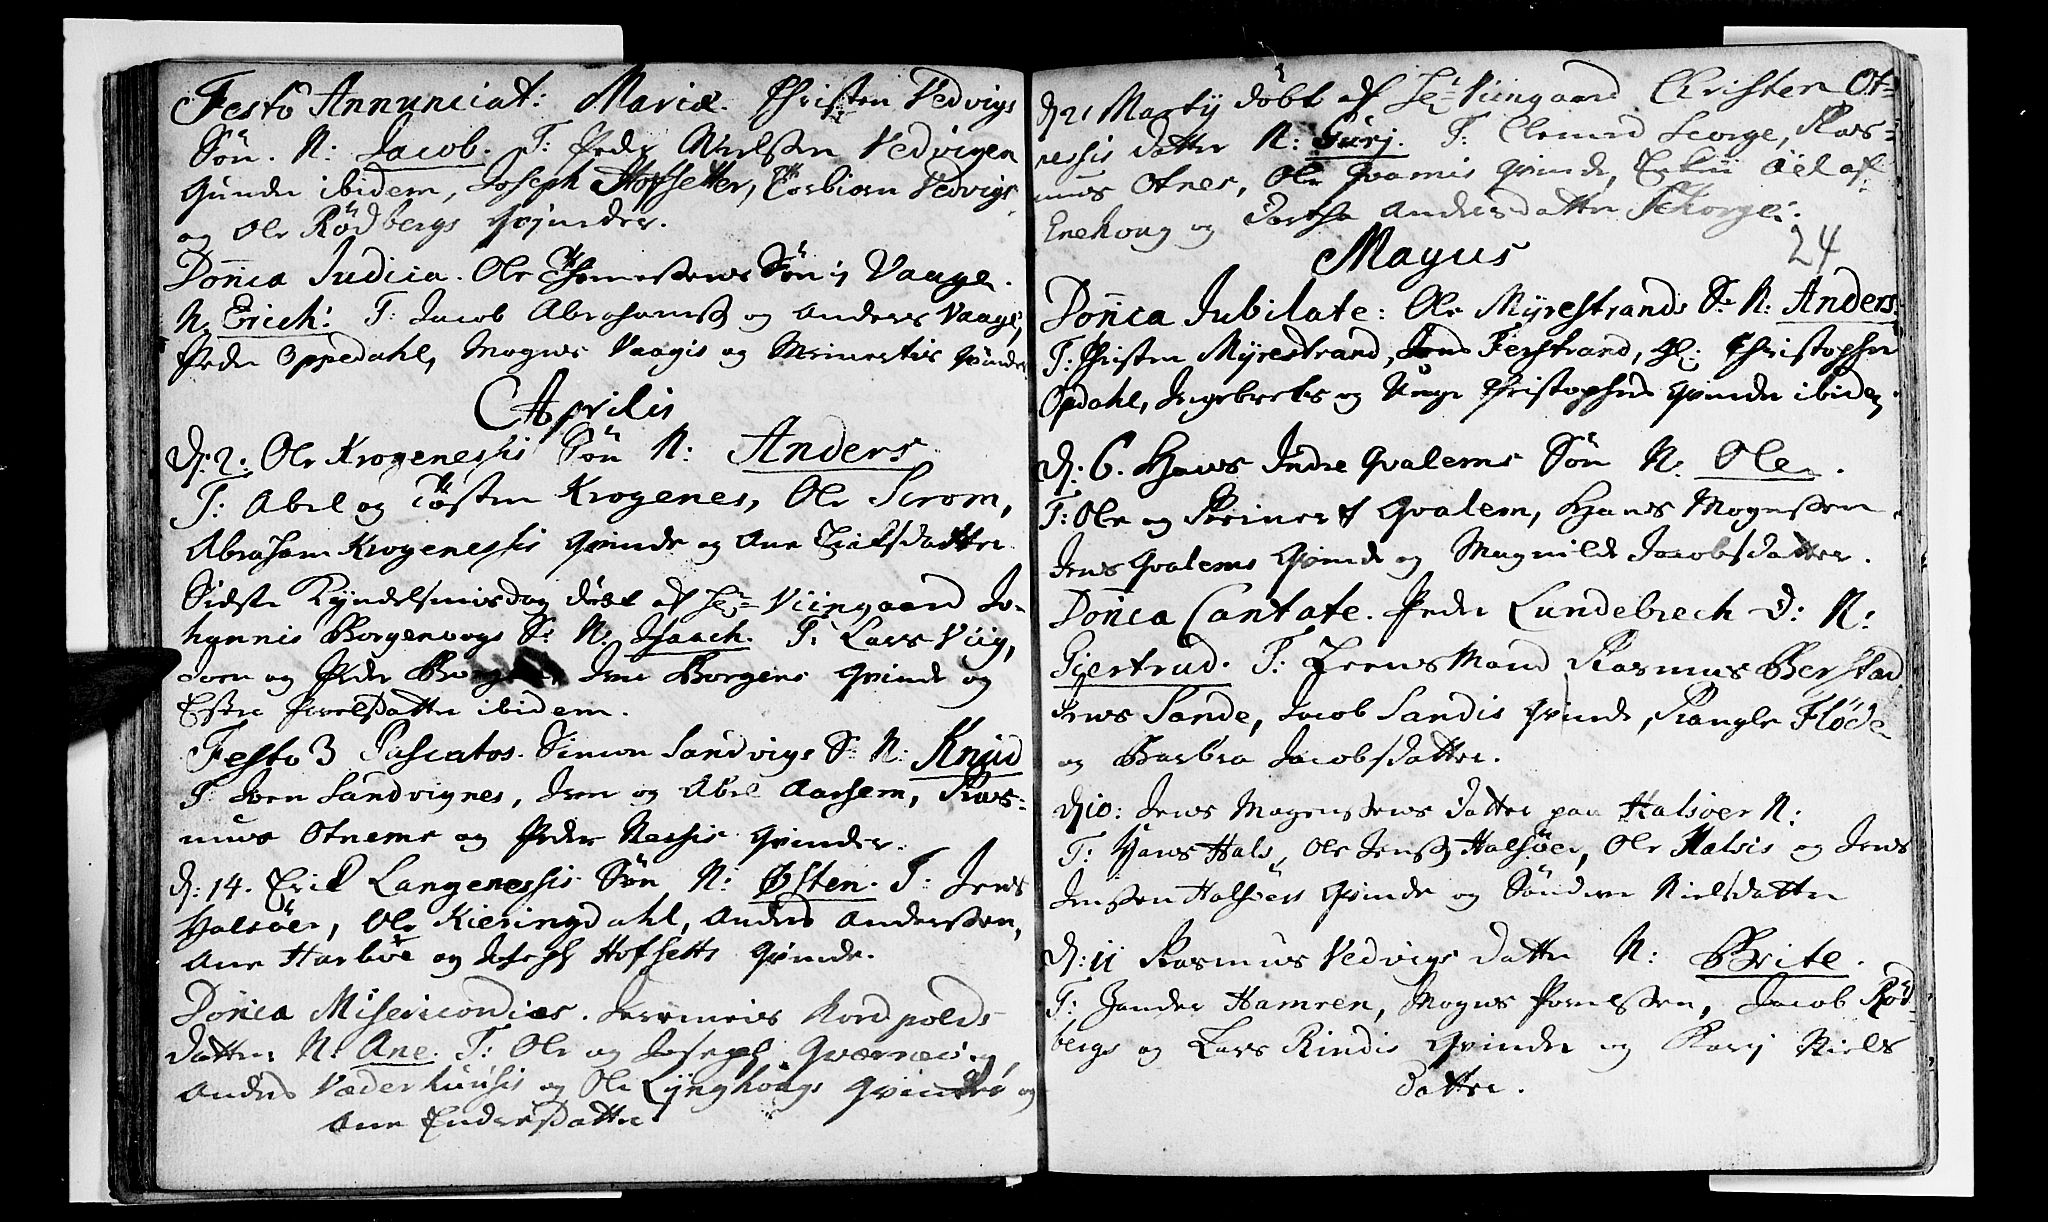 Festo Annunciat: Mariæ. Christen Vedvigs
Søn. N: Jacob. T: Peder Nielssen Vedvigen
Gunder ibidem, Joseph Hofsetter, Torbiørn Vedvigs
og Ole Rødbergs Qvinder.
Doñca Judica. Ole Thomessens Søn i Vaage.
N. Erich: T: Jacob Abrahamss og Anders Vaage,
Peder Oppedahl, Mogns Vaagis og Qvinder
Aprilis
D: 2. Ole Krogenessis Søn N: Anders.
T: Abel og Tosten Krogenes, Ole Strom,
Abraham Krogenessis Qvinde og Ane Eriksdatter.
Sidste Kyndelmisdag døbt af Hr Viingaard Jo-
hannis Borgenvogs S: N. Isaach. T: Lars Viig,
Iven og Peder Jens Borgens Qvinde og
Povelsdatter ibidem.
Festo 3 Pascatos. Simon Sandvigs S: N: Knud
T: Iven Sandvignes, Iven og Abel Aarsem, Ras-
mus Otnems og Peder Nessis Qvinder.
D: 14. Erik Langenessis Søn N: Østen. T: Jens
Halsöer, Ole Kieringdahl, Anders Anderssen,
Ane Harböe og Joseph Hofsetts Qvinde.
Doñca Misericordias. Jeremias Nordpolds
datter N: Ane. T: Ole og Joseph Qværnes
Anders Væderhuusis og Ole Lynghougs Qvinder og
Ane Endresdatter
D 21 Martij döbt af Hr Viingaard Christen Ot-
nessis datter N: Gurj. T: Clemed Leorge, Ras-
mus Otnes, Ole Qvamis Qvinde,
Enekoug og Andersdatter
24
Mayus
Doñca Jubilate: Ole Myrestrands S: N: Anders.
T: Christen Myrestrand, Jens Ferstrand, Christopher
Opdahl, Ingebrets og Unge Christophers Qvinder ibidem.
D: 6. Hans Indre Qvalems Søn N: Ole.
T: Ole og Reinert Qvalem, Hans Mognssen
Jens Qvalems Qvinde og Magnilde Jacobsdatter.
Doñca Cantate. Peder Lundebrech D: N:
Giertrud. T: Leensmand Rasmus Berstad
Jens Sande, Jacob Sandis Qvinde, Rangle Flöde
og Barbra Jacobsdatter.
D 10: Jens Mogenssens datter paa Halsöer N:
T: Hans Hals, Ole Jenss Halsöer, Ole Halsis og Jens
Jenssen Halsöers Qvinde og Nielsdatter
D: 11 Rasmus Vedvigs datter N: Brite.
T: Zander Hamren, Mogns Povelssen, Jacob Röd-
bergs og Lars Rindis Qvinder og Karj Niels
datter.